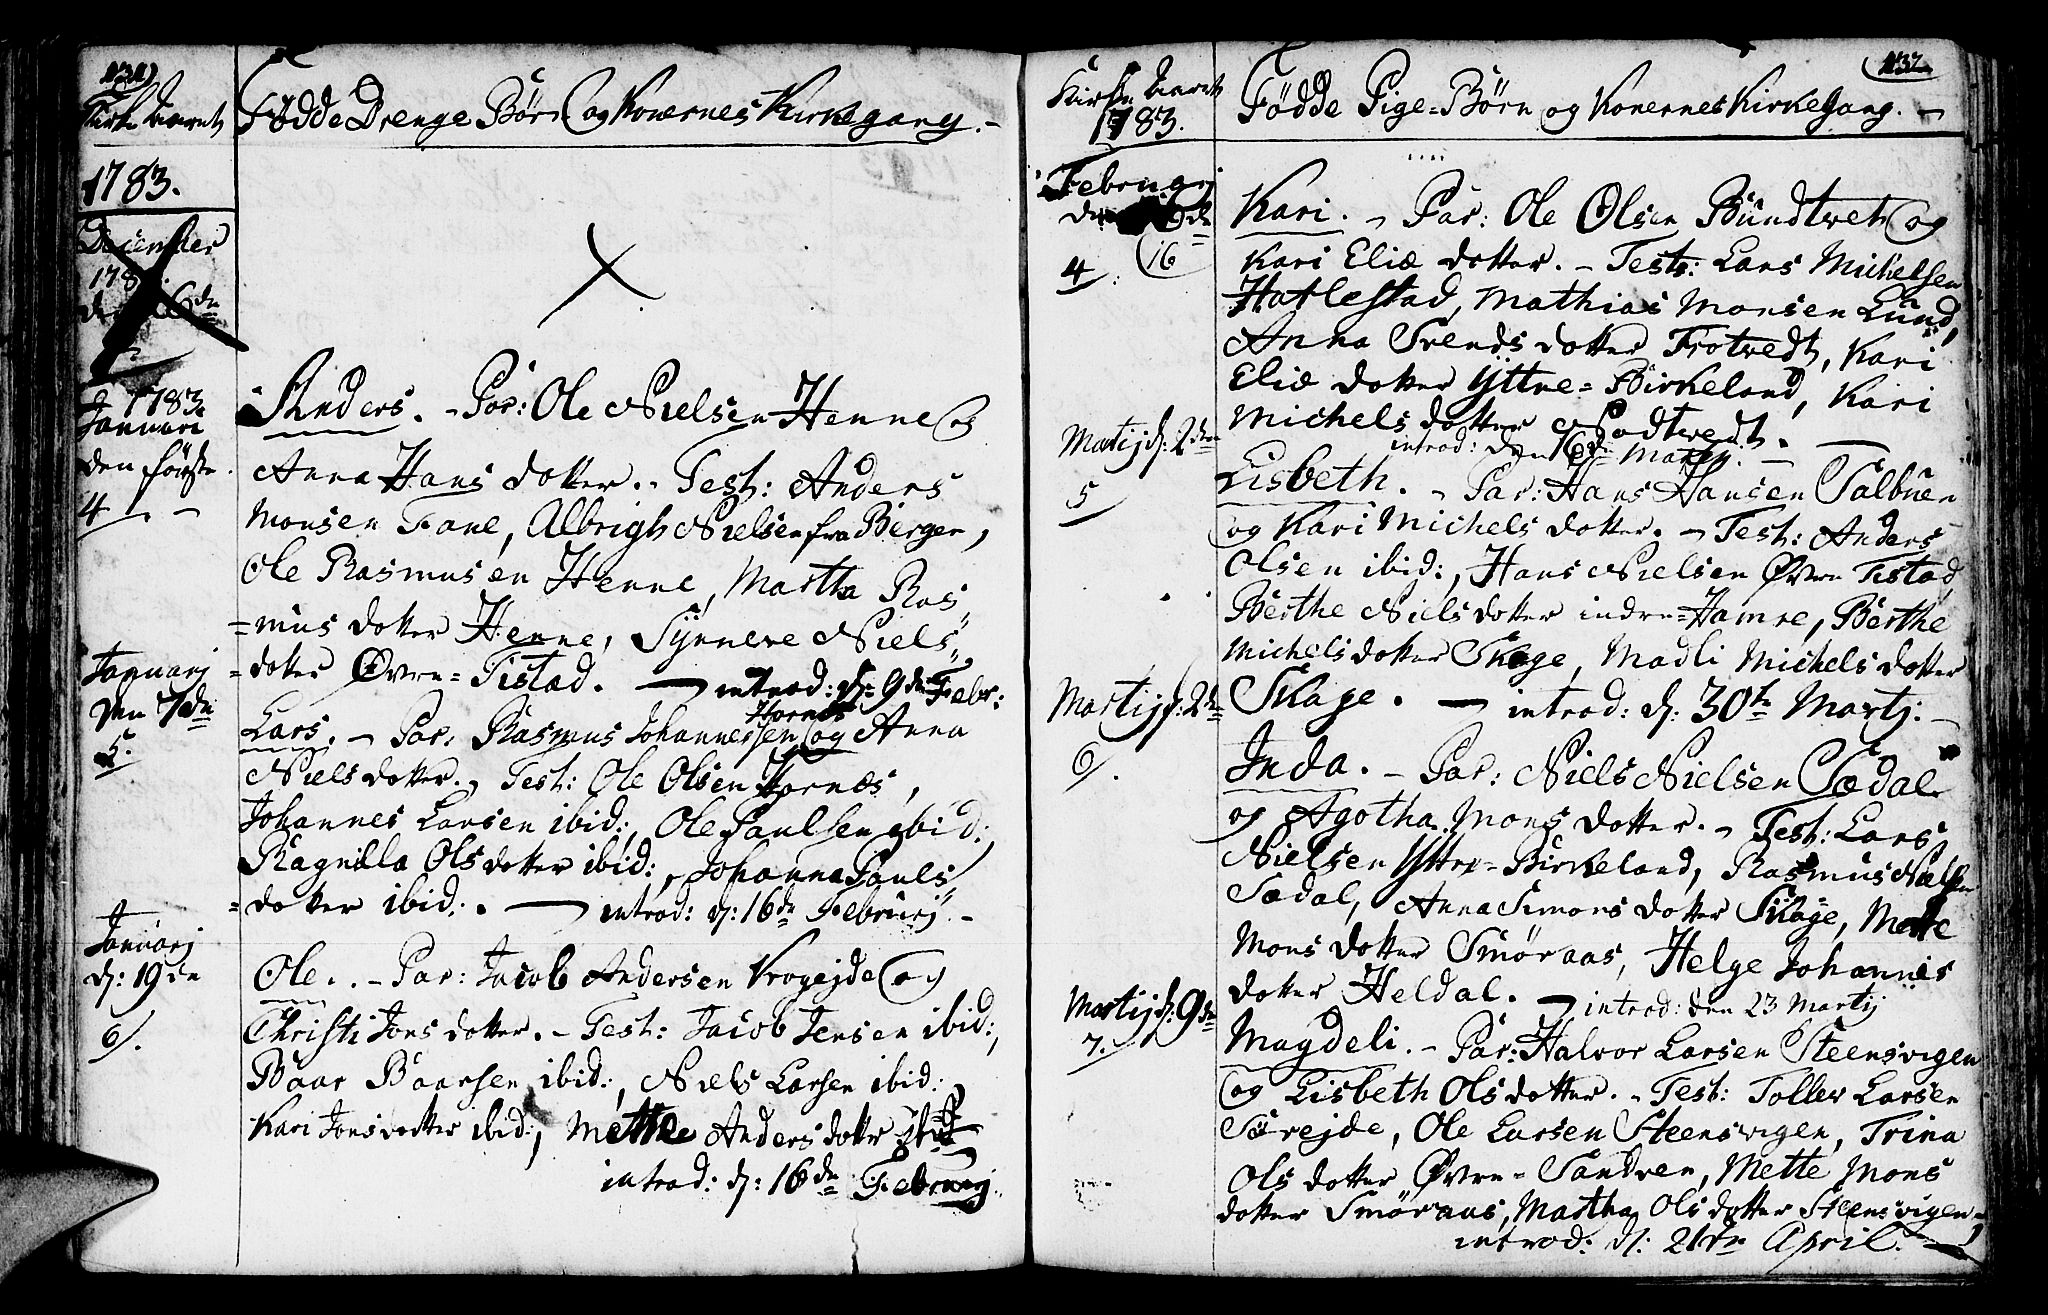 Kirke Aaret
Fødde Drenge Børn og Konernes Kirkegang. -
1783.
December
6de
1783
Januari
den første.
4
Anders. - Par: Ole Nielsen Henne og
Anna Hans dotter. - Test: Anders
Monsen Fane, Albrigh Nielsen fra Bergen,
Ole Rasmusen Henne, Martha Ras
=mus dotter Henne, Synneve Niels
=dotter Øvre=Tistad. - introd: d: 9de Febr:
Januarj
den 7de
5.
Lars. - Par: Rasmus Johannessen Hornes og Anna
Niels dotter. - Test: Ole Olsen Hornæs,
Johannes Larsen ibid:, Ole Paulsen ibid:,
Ragnilla Ols dotter ibid:, Johanna Pauls
=dotter ibid:. - introd: d: 16de Februarj. -
Januarj
d: 19de
6.
Ole. - Par: Jacob Andersen Krogejde og
Christi Jons dotter. - Test: Jacob Jensen ibid:,
Baar Baarsen ibid:, Niels Larsen ibid:
Kari Jons dotter ibid:, Mette Anders dotter ibid
introd: d: 16de Februarj.
137
Kirke Aaret
1783.
Fødde Pige=Børn og Konernes Kirkegang. -
Februarj
16
4
Kari. - Par: Ole Olsen Bundtvet og
Kari Eliæ dotter. - Test: Lars Michelsen
Hatlestad, Mathias Monsen Lund,
Anna Svends dotter Totvedt, Kari
Eliæ dotter Yttre=Birkeland, Kari
Michels dotter Nodtvedt. -
introd: den 16de Martij. -
Martij d: 2den
5
Lisbeth. - Par: Hans Hansen Salbuen
og Kari Michels dotter. - Test: Anders
Olsen ibid:, Hans Nielsen Øvre Tistad,
Berthe Niels dotter indre=Hamre, Berthe
Michels dotter Skage, Madli Michels dotter
Skage. - introd: d: 30te Martj. -
Martij d: 2de
6.
Inda. - Par: Niels Nielsen Sædal
og Agotha Mons dotter. - Test: Lars
Nielsen Yttre=Birkeland, Rasmus Nielsen
Sædal, Anna Simons dotter Skage, Mette
Mons dotter Smøraas, Helge Johannis
dotter Heldal. - introd: den 23 Martij
Martij d: 9de
7.
Magdeli. - Par: Halvor Larsen Steensvigen
og Lisbeth Ols dotter. - Test: Toller Larsen
Sørejde, Ole Larsen Steensvigen, Trina
Ols dotter Øvre=Sandven, Mette Mons
dotter Smøraas, Martha Ols dotter Steensvigen.
introd: d: 21de April. -